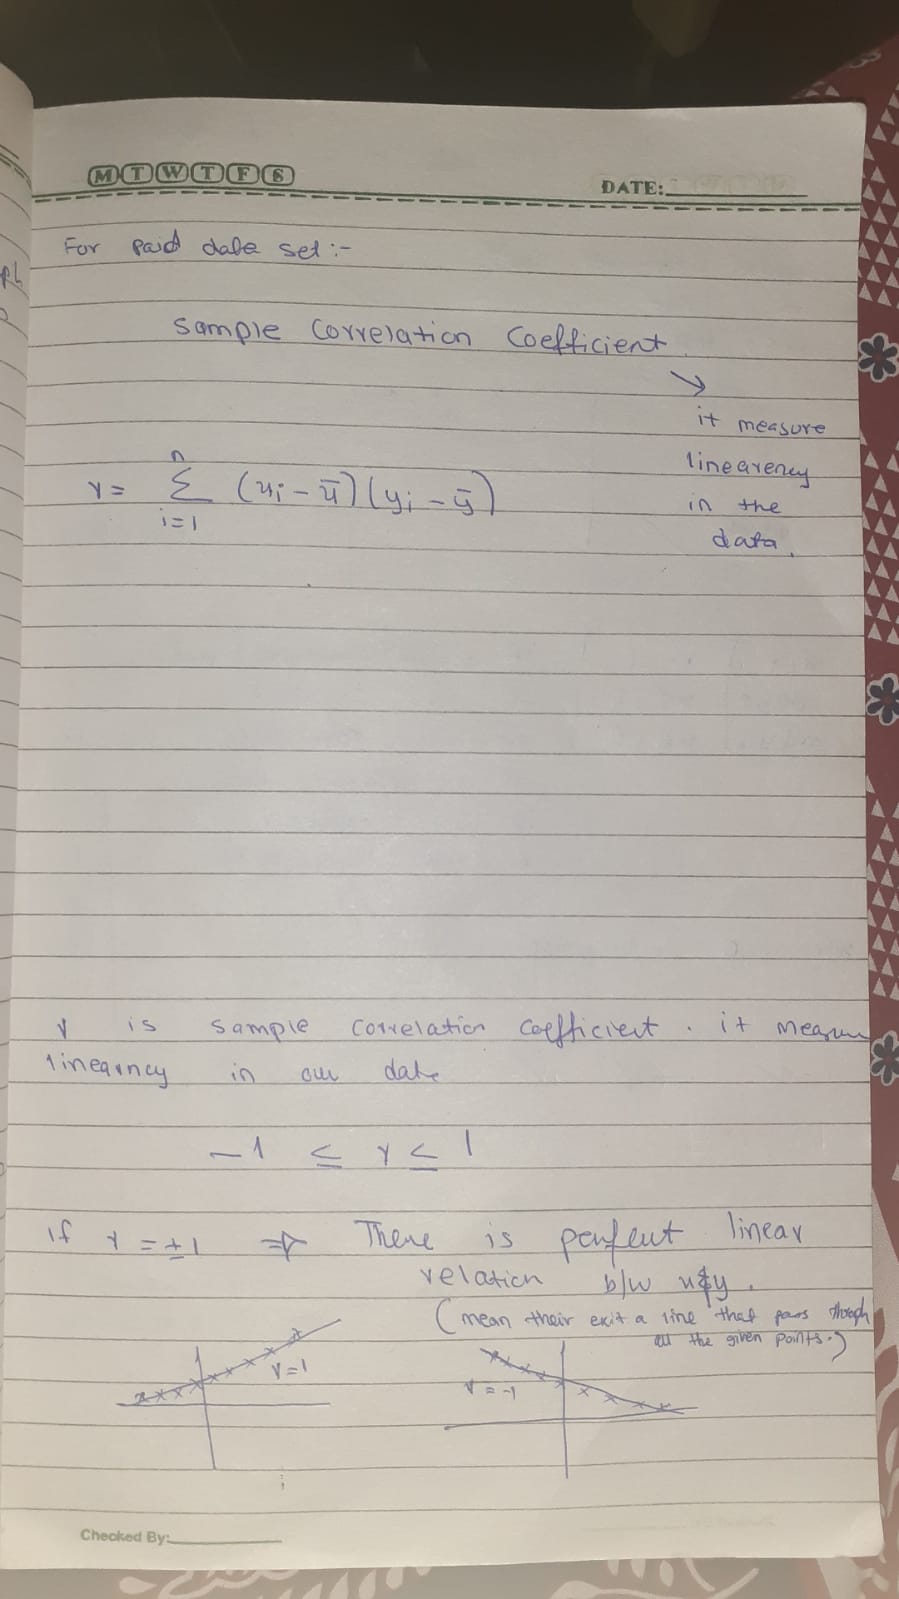 M T W T F S
DATE:
For paid data set :-
Sample Correlation Coefficient
it measure
linearency
in the
data.
r = n Σ i=1 (xi - x̄) (yi - ȳ)
r is sample correlation coefficient . it measure
linearncy in our date
-1 ≤ r ≤ 1
if r = ±1 ⇒ There is perfect linear
relation b/w x & y .
(mean their exit a line that pass though
all the given points.)
r = 1
r = -1
Checked By: